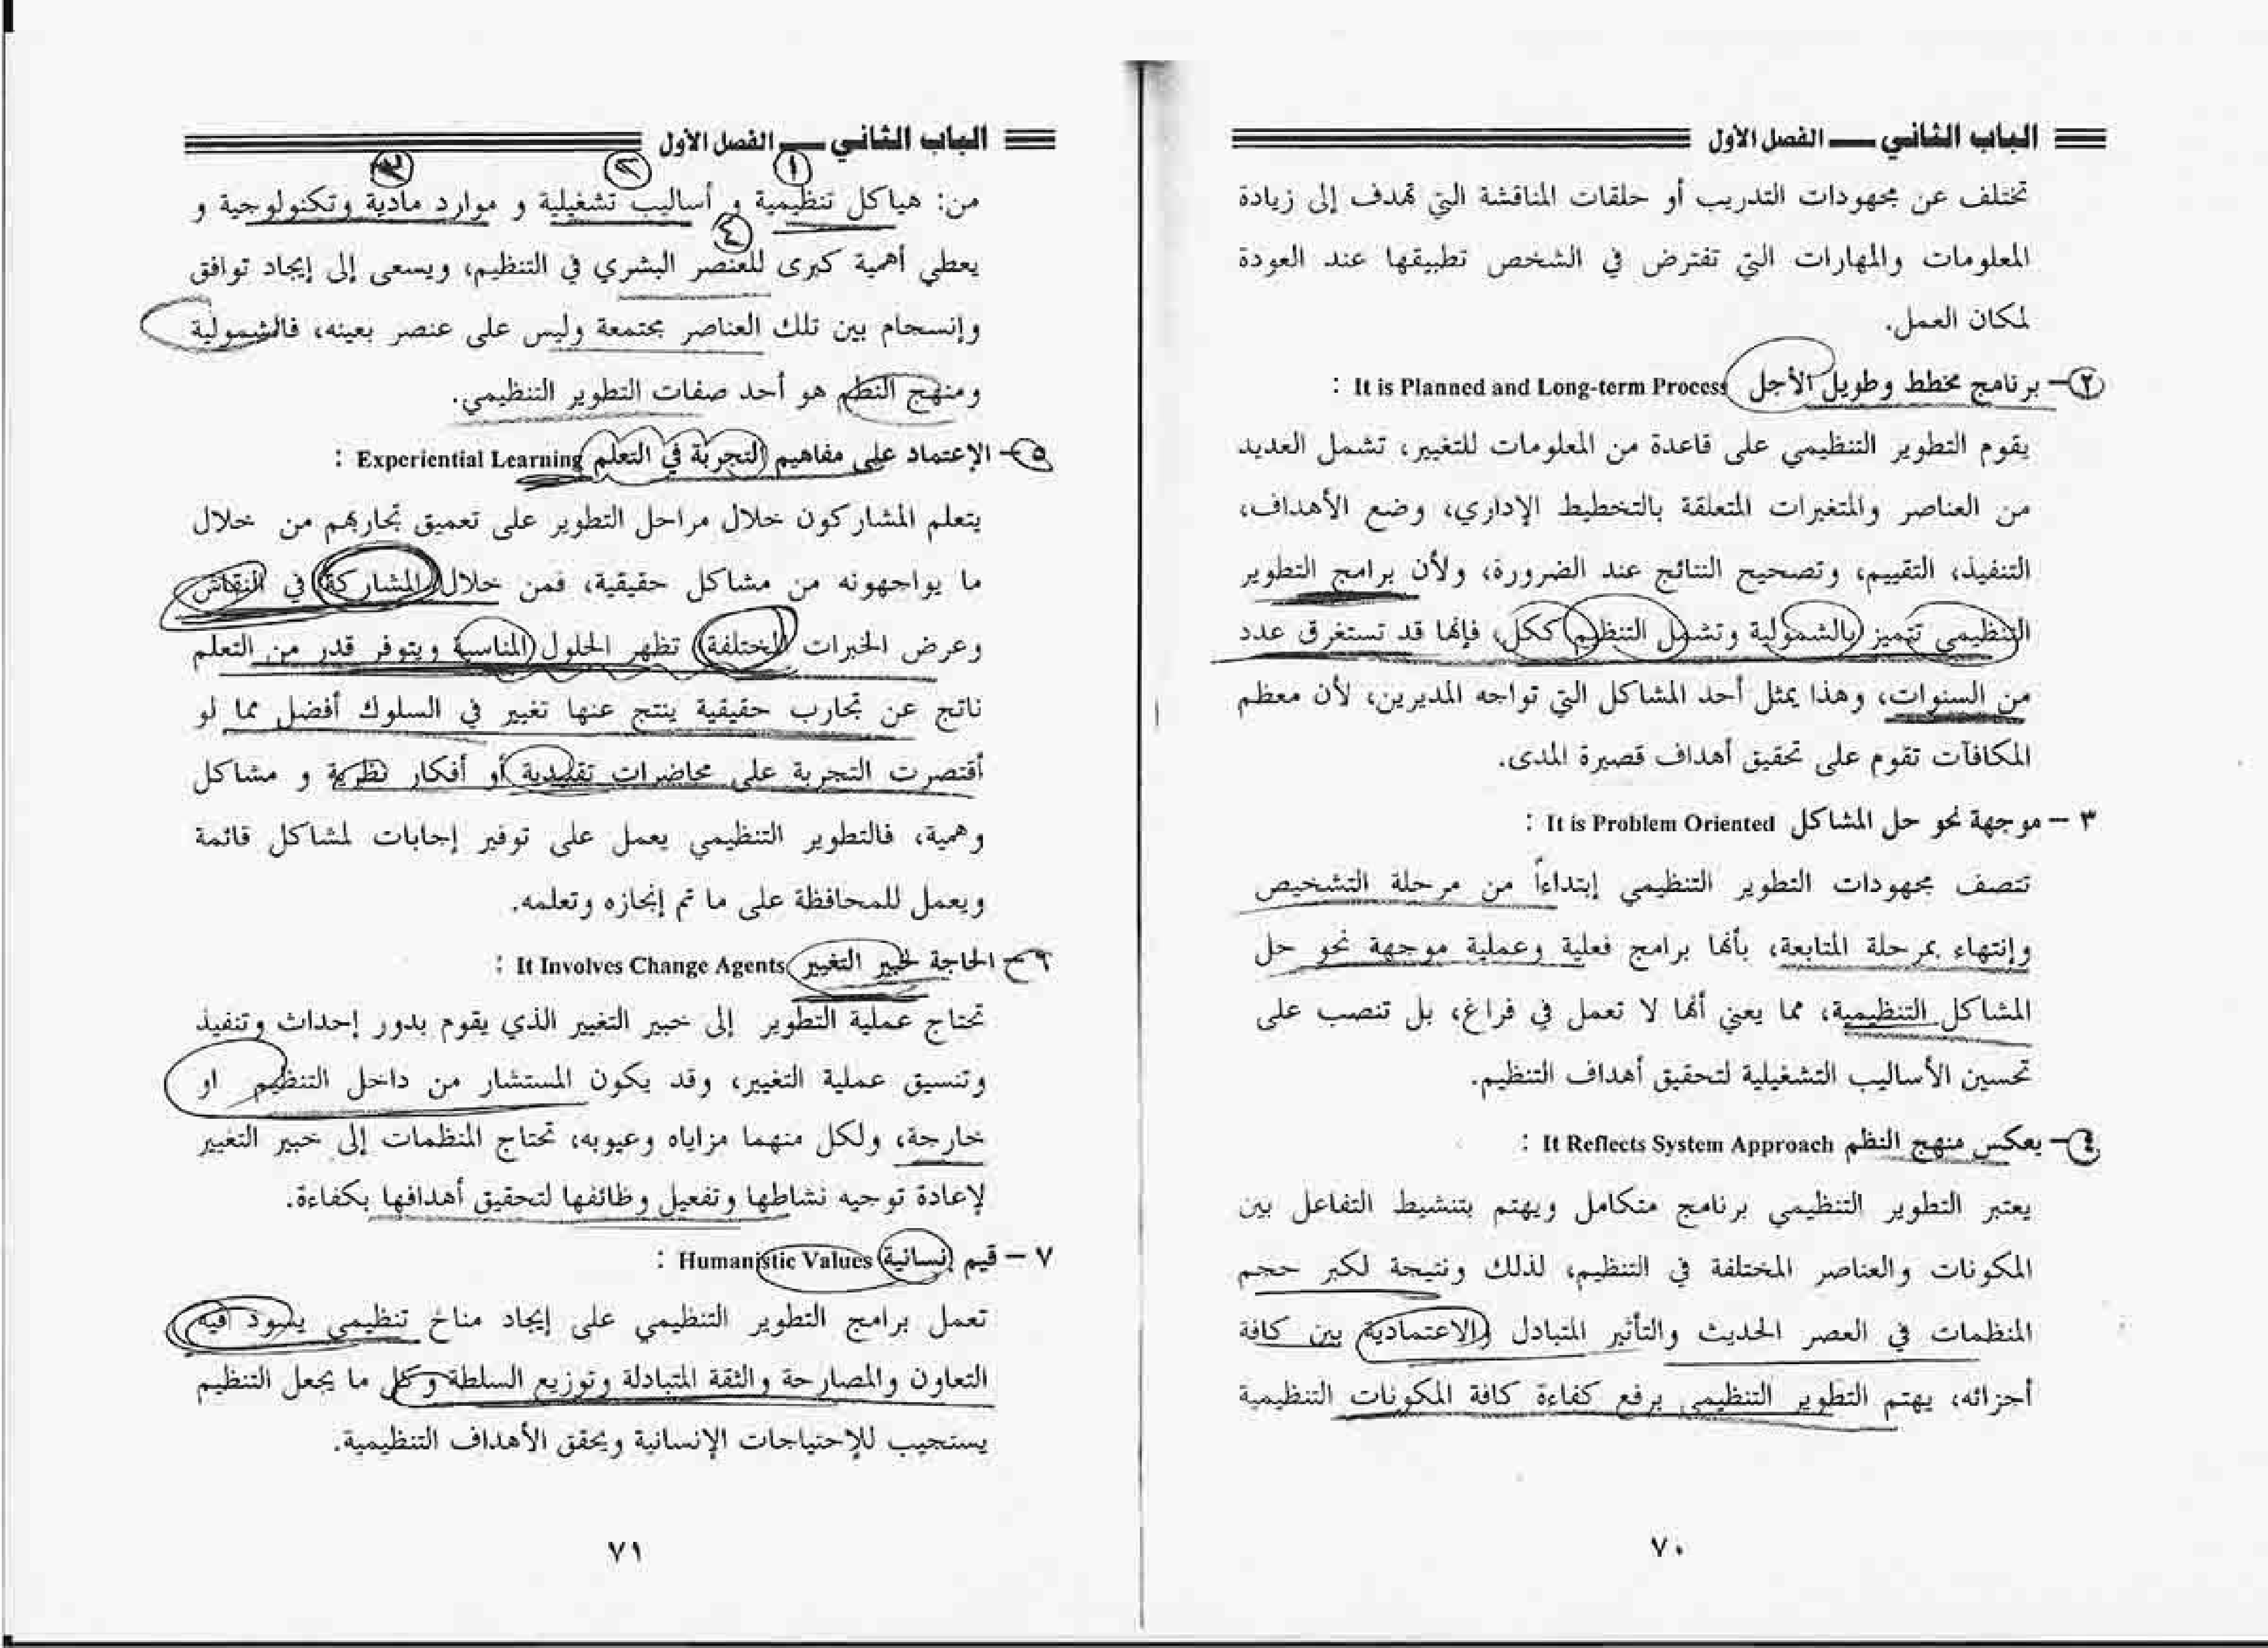 الباب الثاني — الفصل الأول
تختلف عن مجهودات التدريب أو حلقات المناقشة التي تهدف إلى زيادة
المعلومات والمهارات التي تفترض في الشخص تطبيقها عند العودة
لمكان العمل.
٢- برنامج مخطط وطويل الأجل It is Planned and Long-term Process :
يقوم التطوير التنظيمي على قاعدة من المعلومات للتغيير، تشمل العديد
من العناصر والمتغيرات المتعلقة بالتخطيط الإداري، وضع الأهداف،
التنفيذ، التقييم، وتصحيح النتائج عند الضرورة، ولأن برامج التطوير
التنظيمي تتميز بالشمولية وتشمل التنظيم ككل، فإنها قد تستغرق عدد
من السنوات، وهذا يمثل أحد المشاكل التي تواجه المديرين، لأن معظم
المكافآت تقوم على تحقيق أهداف قصيرة المدى.
٣ - موجهة نحو حل المشاكل It is Problem Oriented :
تتصف مجهودات التطوير التنظيمي إبتداءاً من مرحلة التشخيص
وإنتهاء بمرحلة المتابعة، بأنها برامج فعلية وعملية موجهة نحو حل
المشاكل التنظيمية، مما يعني أنها لا تعمل في فراغ، بل تنصب على
تحسين الأساليب التشغيلية لتحقيق أهداف التنظيم.
٤- يعكس منهج النظم It Reflects System Approach :
يعتبر التطوير التنظيمي برنامج متكامل ويهتم بتنشيط التفاعل بين
المكونات والعناصر المختلفة في التنظيم، لذلك ونتيجة لكبر حجم
المنظمات في العصر الحديث والتأثير المتبادل والاعتمادية بين كافة
أجزائه، يهتم التطوير التنظيمي برفع كفاءة كافة المكونات التنظيمية
٧٠
الباب الثاني — الفصل الأول
١ ٢ ٣
من: هياكل تنظيمية و أساليب تشغيلية و موارد مادية وتكنولوجية و
٤
يعطي أهمية كبرى للعنصر البشري في التنظيم، ويسعى إلى إيجاد توافق
وإنسجام بين تلك العناصر مجتمعة وليس على عنصر بعينه، فالشمولية
ومنهج النظم هو أحد صفات التطوير التنظيمي.
٥- الإعتماد على مفاهيم التجربة في التعلم Experiential Learning :
يتعلم المشاركون خلال مراحل التطوير على تعميق تجاربهم من خلال
ما يواجهونه من مشاكل حقيقية، فمن خلال المشاركة في النقاش
وعرض الخبرات المختلفة تظهر الحلول المناسبة ويتوفر قدر من التعلم
ناتج عن تجارب حقيقية ينتج عنها تغيير في السلوك أفضل مما لو
أقتصرت التجربة على محاضرات تقليدية أو أفكار نظرية و مشاكل
وهمية، فالتطوير التنظيمي يعمل على توفير إجابات لمشاكل قائمة
ويعمل للمحافظة على ما تم إنجازه وتعلمه.
٦- الحاجة لخبير التغيير It Involves Change Agents :
تحتاج عملية التطوير إلى خبير التغيير الذي يقوم بدور إحداث وتنفيذ
وتنسيق عملية التغيير، وقد يكون المستشار من داخل التنظيم او
خارجة، ولكل منهما مزاياه وعيوبه، تحتاج المنظمات إلى خبير التغيير
لإعادة توجيه نشاطها وتفعيل وظائفها لتحقيق أهدافها بكفاءة.
٧ - قيم إنسانية Humanistic Values :
تعمل برامج التطوير التنظيمي على إيجاد مناخ تنظيمي يسود فيه
التعاون والمصارحة والثقة المتبادلة وتوزيع السلطة وكل ما يجعل التنظيم
يستجيب للإحتياجات الإنسانية ويحقق الأهداف التنظيمية.
٧١